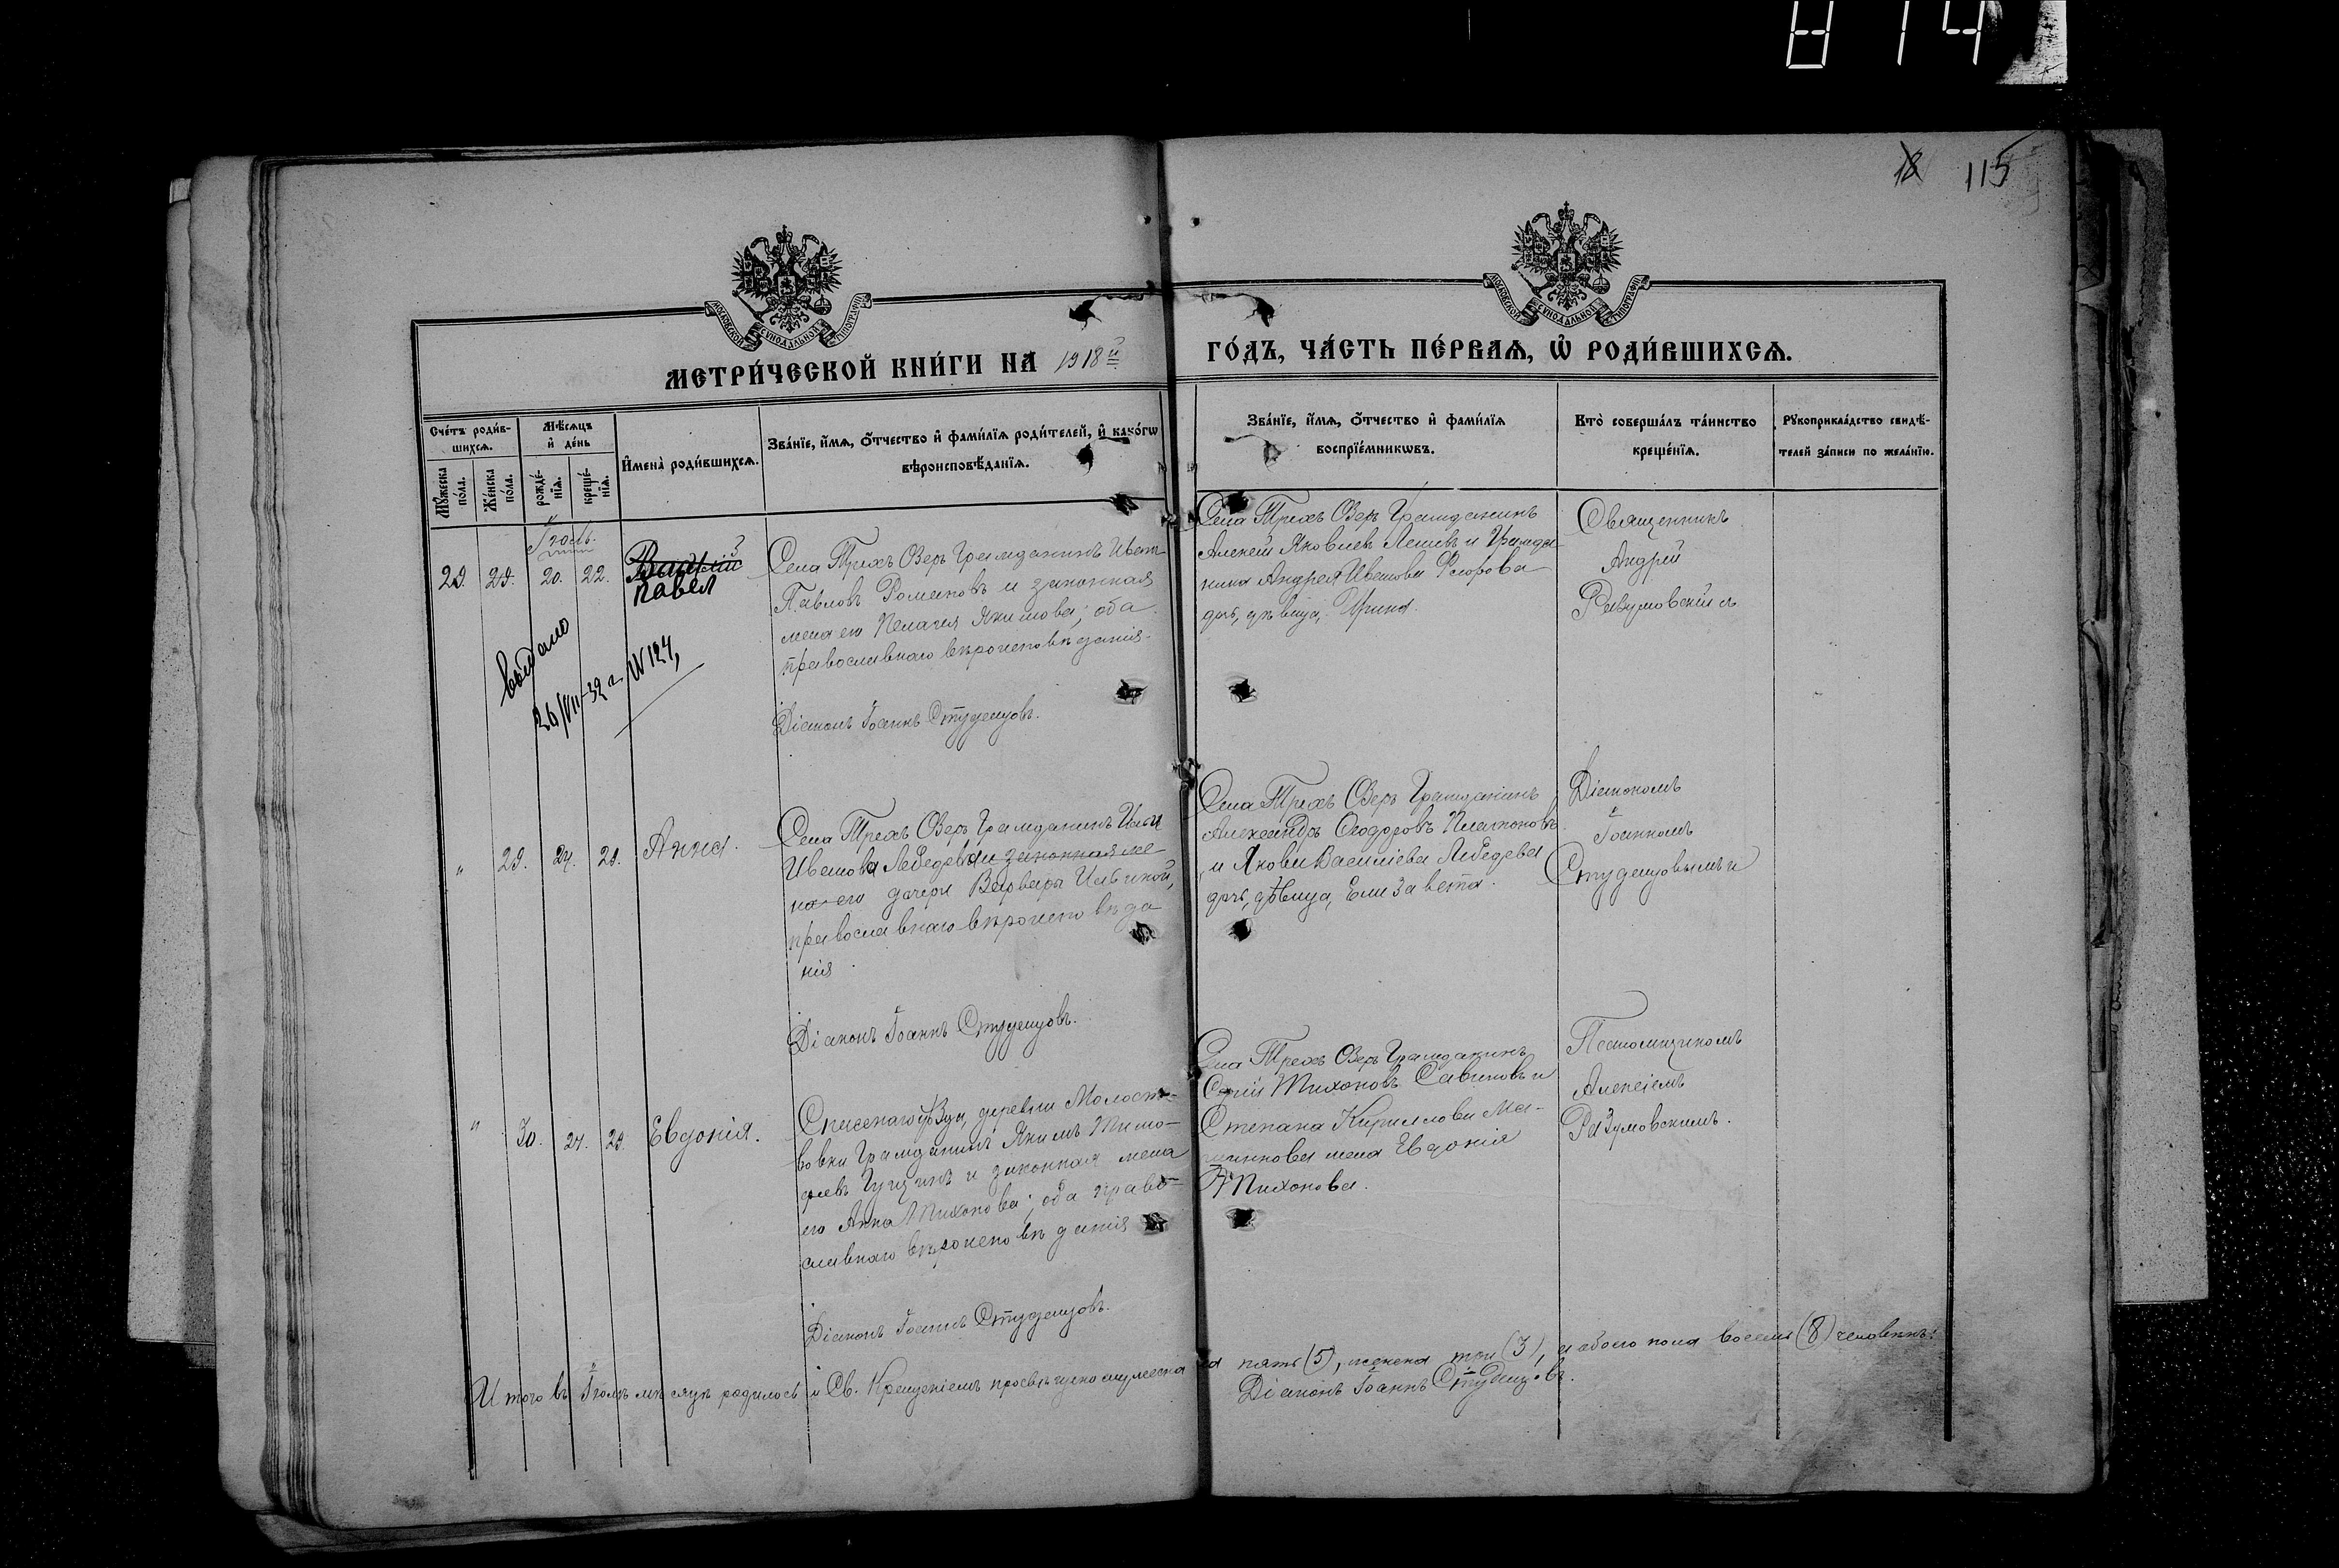 814
18 115
МОСКОВСКОЙ СѴНОДАЛЬНОЙ ТИПОГРАФІИ
МОСКОВСКОЙ СѴНОДАЛЬНОЙ ТИПОГРАФІИ
МЕТРИ́ЧЕСКОЙ КНИ́ГИ НА 1918й
ГО́ДЪ, ЧА́СТЬ ПЕ́РВАѦ, Ѽ РОДИ́ВШИХСѦ.
Сче́тъ роди́в-
шихсѧ.
Мꙋ́жеска по́ла.
Же́нска по́ла.
Мѣ́сѧцъ
и҆ де́нь
рожде́-
нїѧ.
креще́-
нїѧ.
И҆мена̀ роди́вшихсѧ.
Зва́нїе, и҆́мѧ, ѻ҆́тчество и҆ фами́лїѧ роди́телей, и҆ како́гѡ
вѣроисповѣ́данїѧ.
Зва́нїе, и҆́мѧ, ѻ҆́тчество и҆ фами́лїѧ
воспрїе́мникѡвъ.
Кто̀ соверша́лъ та́инство
креще́нїѧ.
Рꙋкоприкла́дство свидѣ́-
телей за́писи по жела́нїю.
Іюль.
29. 29. 20. 22.
Павел
Села Трехъ Озеръ Гражданинъ Иванъ
Павловъ Романовъ и законная
жена его Пелагея Якимова; оба
православнаго вѣроисповѣданія.
Діаконъ Іоаннъ Студенцовъ.
Села Трехъ Озеръ Гражданинъ
Алексей Яковлев и Гражда-
нина Андрея Иванова
дочь, дѣвица, Ирина.
Священникъ
Андрей
Разумовскій
выдано
26/VII-39 г. N 124,
" 29. 27. 29. Анна.
Села Трехъ Озеръ Гражданинъ Ильи
Иванова Лебедева и законная же-
на его дочери Варвары Ильиной,
православнаго вѣроисповѣда-
нія.
Діаконъ Іоаннъ Студенцовъ.
Села Трехъ Озеръ Гражданинъ
Александръ Феодоровъ Платоновъ
и Якова Василіева Лебедева
дочь, дѣвица, Елизавета.
Діакономъ
Іоанномъ
Студенцовымъ
" 30. 27. 29. Евдокія.
Спасскаго уѣзда, деревни Молост-
вовки Гражданинъ Якимъ Тимо-
феевъ и законная жена
его Анна Тихонова; оба право-
славнаго вѣроисповѣданія
Діаконъ Іоаннъ Студенцовъ.
Села Трехъ Озеръ Гражданинъ
Сергій Тихоновъ Савиновъ и
Степана Кириллова
жена Евдокія
Тихонова.
Псаломщикомъ
Алексіемъ
Разумовскимъ.
Итого въ Іюлѣ мѣсяцѣ родилось и Св. Крещеніемъ просвѣщено мужеска пола пять (5), женска три (3), а обоего пола восемь (8) человѣкъ.
Діаконъ Іоаннъ Студенцовъ.